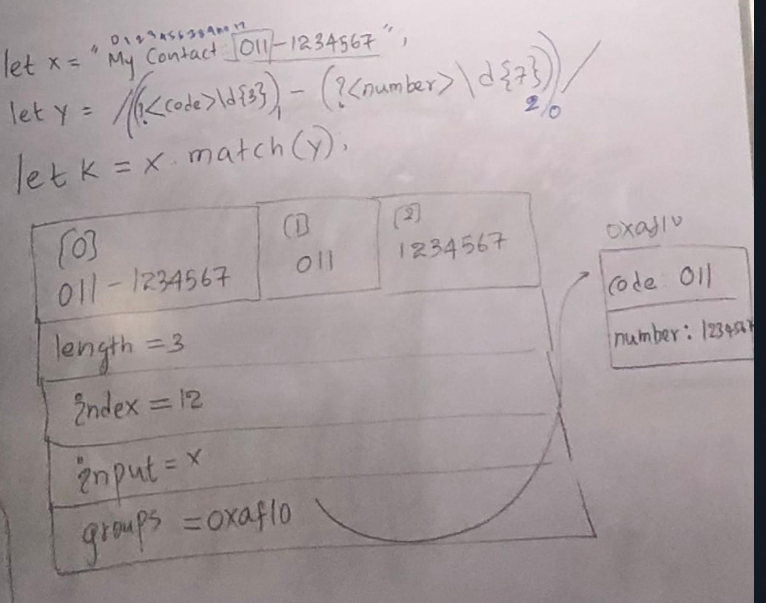 let x = " My Contact 011-1234567 ",
let y = /((?<code>\d{3}) - (?<number>\d{7}))/
1
2
0
let k = x.match(y);
[0]
011-1234567
(1)
011
[2]
1234567
length = 3
index = 12
input = x
groups = 0xaf10
0xaf10
code: 011
number: 1234567